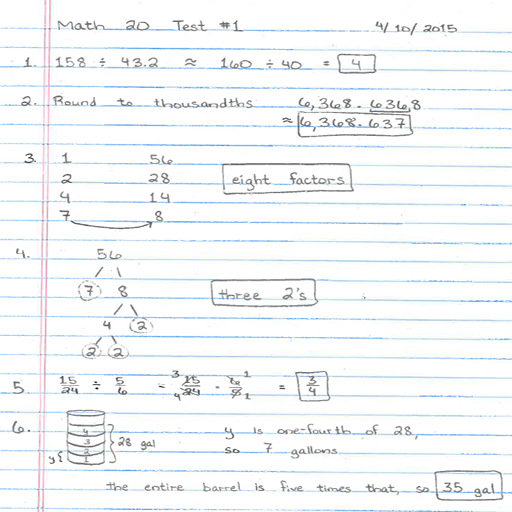 Math 20 Test #1 4/10/2015
1. 158 ÷ 43.2 ≈ 160 ÷ 40 = 4
2. Round to thousandths 6,368.6368
≈ 6,368.637
3. 1 56
2 28 eight factors
4 14
7 8
4. 56
7 8 three 2's
4 2
2 2
5. 15/24 ÷ 5/6 = 3 15/4 24 · 6 1/5 1 = 3/4
6. 4 3 2 1 y{ }28 gal y is one-fourth of 28,
so 7 gallons
the entire barrel is five times that, so 35 gal